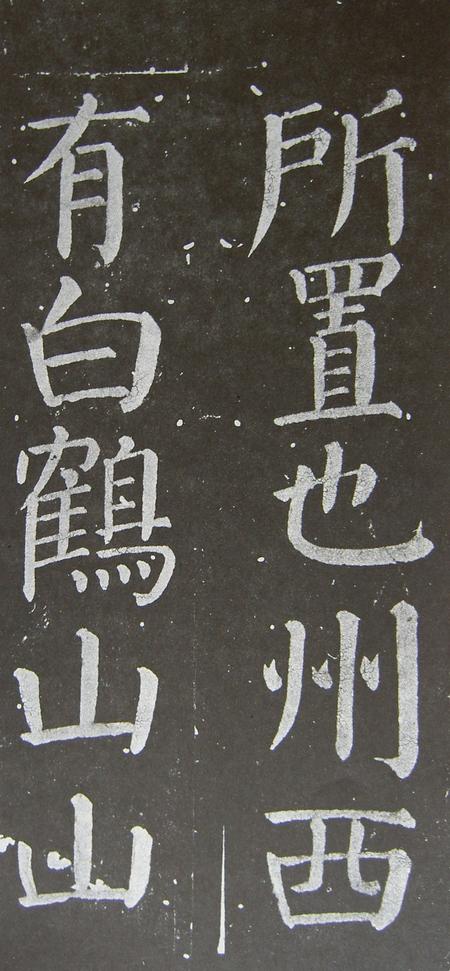 所置也州西
有白鶴山山